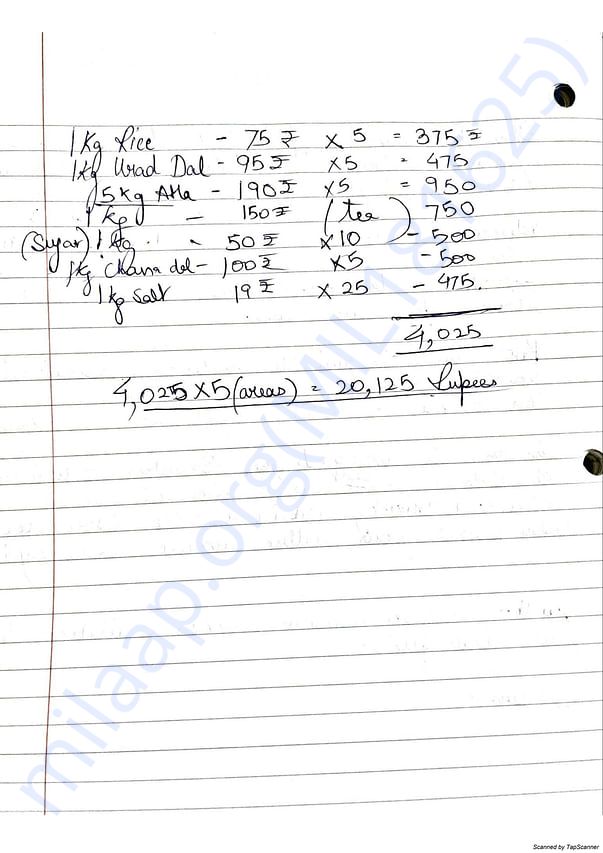 1 Kg Rice - 75 ₹ × 5 = 375 ₹
1 Kg Urad Dal - 95 ₹ ×5 = 475
5 Kg Atta - 190 ₹ ×5 = 950
1 Kg - 150 ₹ (tea) 750
(Sugar) 1 Kg - 50 ₹ ×10 - 500
1 Kg Chana dal - 100 ₹ ×5 - 500
1 Kg Salt 19 ₹ × 25 - 475
4,025
4,025 × 5 (areas) = 20,125 Rupees
milaap.org(MIL181625)
Scanned by TapScanner